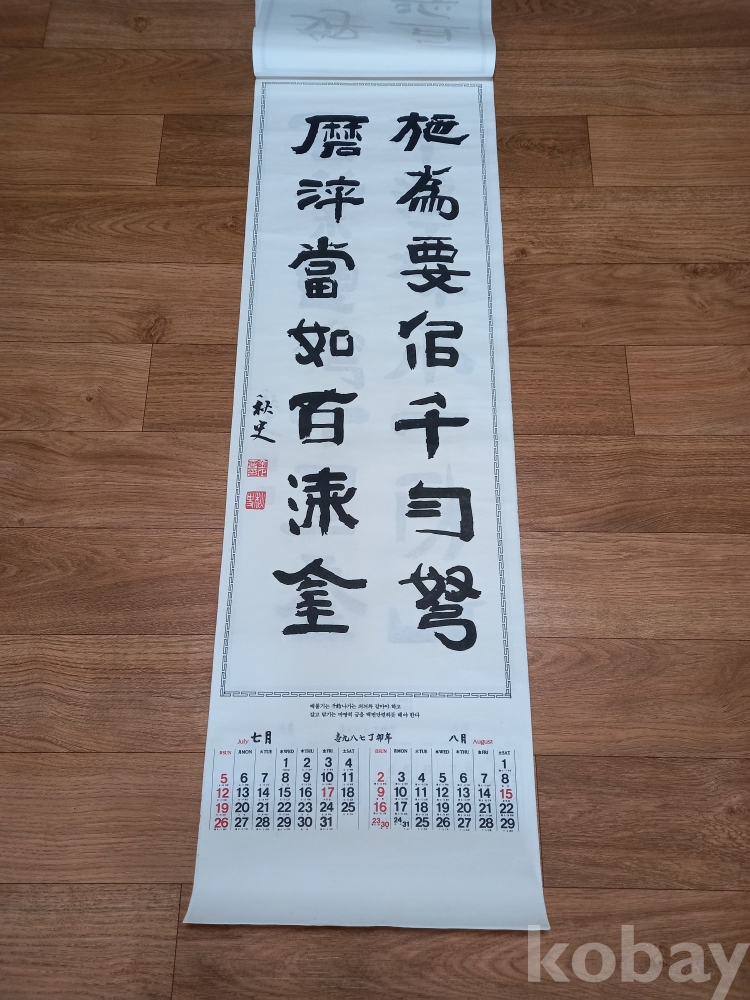 施為要佀千勻弩
磨淬當如百湅金
秋史
베풀기는 나가는 쇠뇌와 같아야 하고
갈고 닦기는 마땅히 금을 백번단련하듯 해야 한다
July 七月 壹九八七丁卯年 八月 August
日SUN 月MON 火TUE 水WED 木THU 金FRI 土SAT 日SUN 月MON 火TUE 水WED 木THU 金FRI 土SAT
1 2 3 4 1
5 6 7 8 9 10 11 2 3 4 5 6 7 8
12 13 14 15 16 17 18 9 10 11 12 13 14 15
19 20 21 22 23 24 25 16 17 18 19 20 21 22
26 27 28 29 30 31 23 30 24 31 25 26 27 28 29
kobay